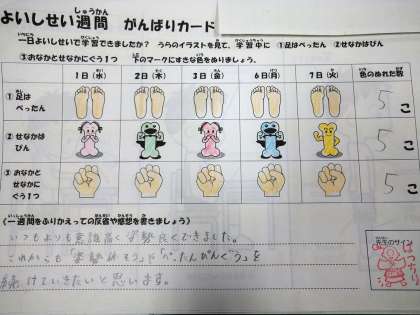 よいしせい週間 がんばりカード
しゅうかん
一日よいしせいで学習できましたか？ うらのイラストを見て、学習中に ①足はぺったん ②せなかはぴん
③おなかとせなかにぐう1つ 下のマークにすきな色をぬりましょう。
1日(水) 2日(木) 3日(金) 6日(月) 7日(火) 色のぬれた数
①足はぺったん 5こ
②せなかはぴん 5こ
③おなかとせなかにぐう1つ 5こ
(一週間をふりかえっての反省や感想を書きましょう)
いつもよりも意識高く姿勢良くできました。
これからも「姿勢
続けていきたいと思います。
先生のサイン